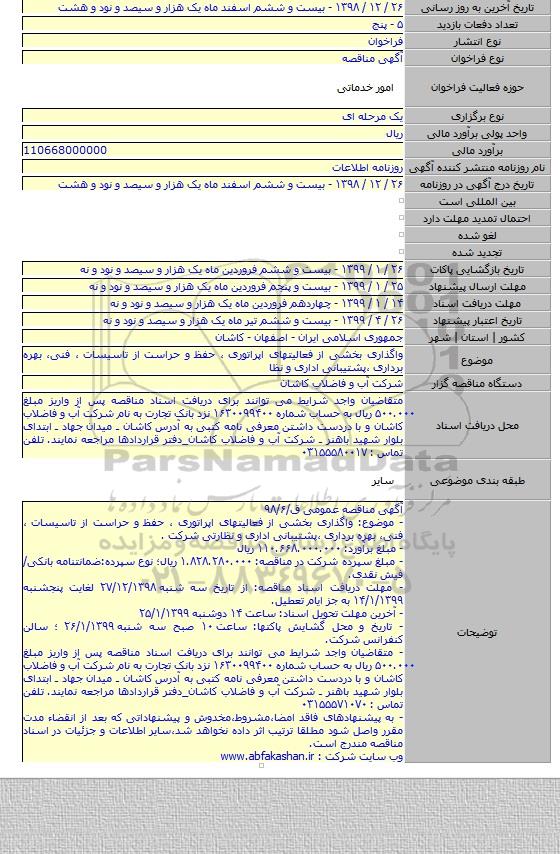 تاریخ آخرین به روز رسانی
۲۶ / ۱۲ / ۱۳۹۸ - بیست و ششم اسفند ماه یک هزار و سیصد و نود و هشت
تعداد دفعات بازدید
۵ - پنج
نوع انتشار
فراخوان
نوع فراخوان
آگهی مناقصه
حوزه فعالیت فراخوان
امور خدماتی
نوع برگزاری
یک مرحله ای
واحد پولی برآورد مالی
ریال
برآورد مالی
110668000000
نام روزنامه منتشر کننده آگهی
روزنامه اطلاعات
تاریخ درج آگهی در روزنامه
۲۶ / ۱۲ / ۱۳۹۸ - بیست و ششم اسفند ماه یک هزار و سیصد و نود و هشت
بین المللی است
احتمال تمدید مهلت دارد
لغو شده
تجدید شده
تاریخ بازگشایی پاکات
۲۶ / ۱ / ۱۳۹۹ - بیست و ششم فروردین ماه یک هزار و سیصد و نود و نه
مهلت ارسال پیشنهاد
۲۵ / ۱ / ۱۳۹۹ - بیست و پنجم فروردین ماه یک هزار و سیصد و نود و نه
مهلت دریافت اسناد
۱۴ / ۱ / ۱۳۹۹ - چهاردهم فروردین ماه یک هزار و سیصد و نود و نه
تاریخ اعتبار پیشنهاد
۲۶ / ۴ / ۱۳۹۹ - بیست و ششم تیر ماه یک هزار و سیصد و نود و نه
کشور | استان | شهر
جمهوری اسلامی ایران - اصفهان - کاشان
موضوع
واگذاری بخشی از فعالیتهای اپراتوری ، حفظ و حراست از تاسیسات ، فنی، بهره
برداری ،پشتیبانی اداری و نظا
دستگاه مناقصه گزار
شرکت آب و فاضلاب کاشان
محل دریافت اسناد
متقاضیان واجد شرایط می توانند برای دریافت اسناد مناقصه پس از واریز مبلغ
۵۰۰.۰۰۰ ریال به حساب شماره ۱۶۳۰۰۹۹۴۰۰ نزد بانک تجارت به نام شرکت آب و فاضلاب
کاشان و با دردست داشتن معرفی نامه کتبی به آدرس کاشان ـ میدان جهاد ـ ابتدای
بلوار شهید باهنر ـ شرکت آب و فاضلاب کاشان_دفتر قراردادها مراجعه نمایند. تلفن
تماس : ۰۳۱۵۵۵۸۰۰۱۷
ParsNamadData
طبقه بندی موضوعی
سایر
توضیحات
آگهی مناقصه عمومی ق/۹۸/۶
- موضوع: واگذاری بخشی از فعالیتهای اپراتوری ، حفظ و حراست از تاسیسات ،
فنی، بهره برداری ،پشتیبانی اداری و نظارتی شرکت .
- مبلغ برآورد: ۱۱۰.۶۶۸.۰۰۰.۰۰۰ ریال
- مبلغ سپرده شرکت در مناقصه: ۱.۸۲۸.۲۸۰.۰۰۰ ریال؛ نوع سپرده:ضمانتنامه بانکی/
فیش نقدی.
- مهلت دریافت اسناد مناقصه: از تاریخ سه شنبه ۲۷/۱۲/۱۳۹۸ لغایت پنجشنبه
۱۴/۱/۱۳۹۹ به جز ایام تعطیل.
- آخرین مهلت تحویل اسناد: ساعت ۱۴ دوشنبه ۲۵/۱/۱۳۹۹
- تاریخ و محل گشایش پاکتها: ساعت ۱۰ صبح سه شنبه ۲۶/۱/۱۳۹۹ ؛ سالن
کنفرانس شرکت.
- متقاضیان واجد شرایط می توانند برای دریافت اسناد مناقصه پس از واریز مبلغ
۵۰۰.۰۰۰ ریال به حساب شماره ۱۶۳۰۰۹۹۴۰۰ نزد بانک تجارت به نام شرکت آب و فاضلاب
کاشان و با دردست داشتن معرفی نامه کتبی به آدرس کاشان ـ میدان جهاد ـ ابتدای
بلوار شهید باهنر ـ شرکت آب و فاضلاب کاشان_دفتر قراردادها مراجعه نمایند. تلفن
تماس : ۰۳۱۵۵۵۷۱۰۷۰
- به پیشنهادهای فاقد امضا،مشروط،مخدوش و پیشنهاداتی که بعد از انقضاء مدت
مقرر واصل شود مطلقا ترتیب اثر داده نخواهد شد،سایر اطلاعات و جزئیات در اسناد
مناقصه مندرج است.
وب سایت شرکت : www.abfakashan.ir